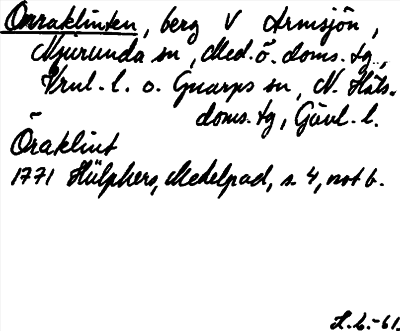 Onraklinten, berg V Armsjön,
Njurunda sn, Med. ö. doms. tg.,
Vnul. l. o. Gnarps sn, N. Häls.
doms. tg, Gävl. l.
Öraklint
1771 Hülphers, Medelpad, s. 4, not b.
L. L. -61.